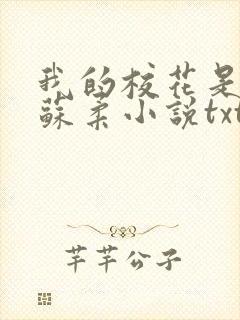 我的校花是
蘇柔小說txt
芊芊公子